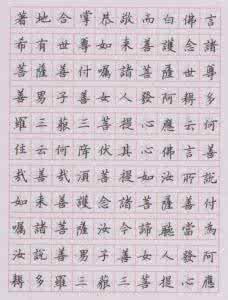 著地合掌恭敬而白佛言
希有世尊如來善護念諸
菩薩善付囑諸菩薩世尊
善男子善女人發阿耨多
羅三藐三菩提心應云何
住云何降伏其心佛言善
哉善哉須菩提如汝所說
如來善護念諸菩薩善付
囑諸菩薩汝今諦聽當為
汝說善男子善女人發阿
耨多羅三藐三菩提心應